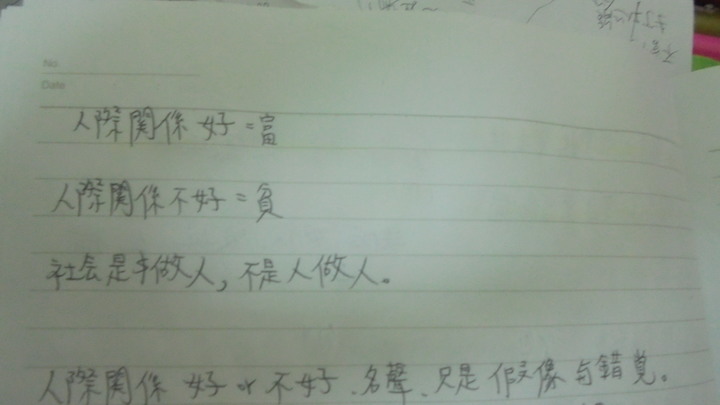 No
Date
人際関係 好=富
人際関係不好=負
社会是 做人,不是人做人。
人際関係 好 or 不好、名聲、只是 像与錯覚。
不